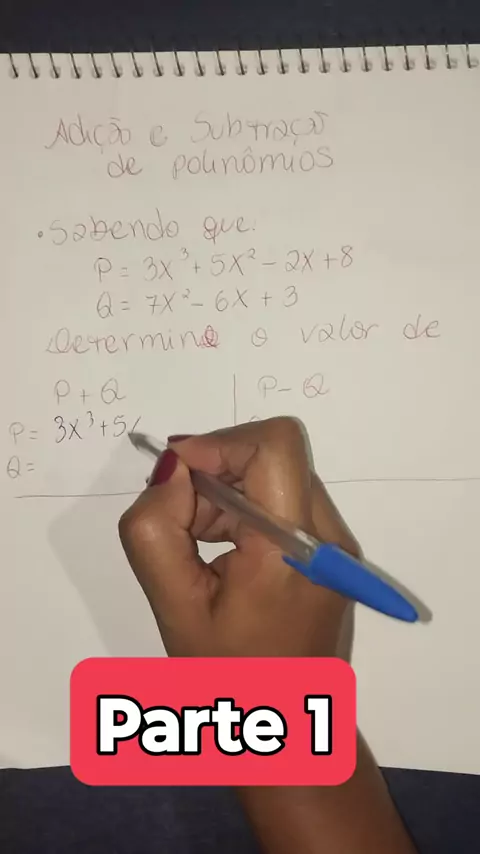 Adição e Subtração
de polinômios
• Sabendo que:
P = 3x³ + 5x² - 2x + 8
Q = 7x² - 6x + 3
Determine o valor de
P + Q
P - Q
P = 3x³ + 5
Q =
Parte 1